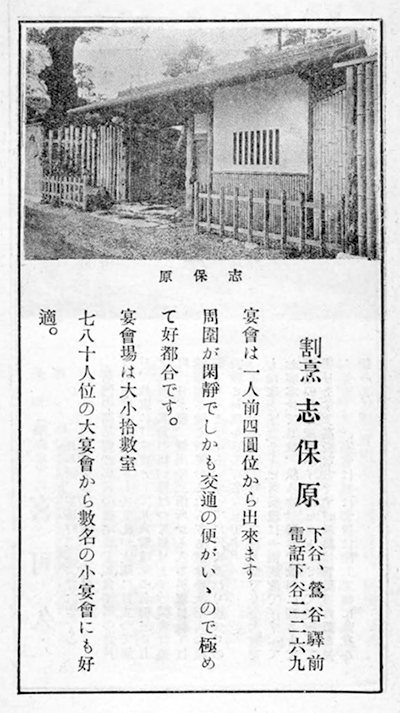 原保志
割烹 志保原
下谷、鶯谷驛前
電話下谷二二六九
宴會は一人前四圓位から出來ます
周圍が閑靜でしかも交通の便がいゝので極め
て好都合です。
宴會場は大小拾數室
七八十人位の大宴會から數名の小宴會にも好
適。